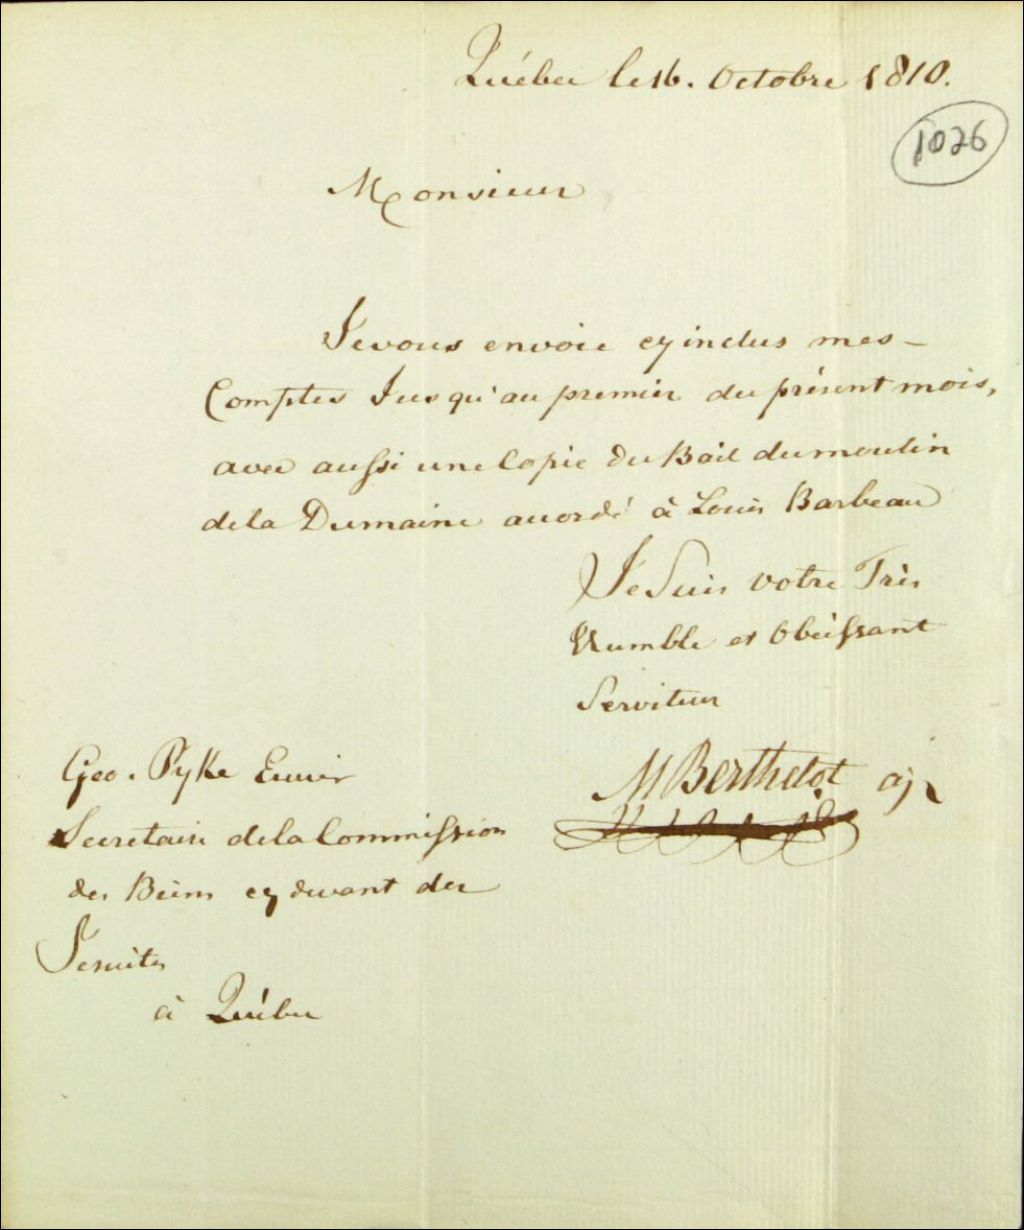 Québec le 16. Octobre 1810.
1026
Monsieur
Je vous envoie cy inclus mes
Comptes Jusqu'au premier du présent mois,
avec aussi une Copie du Bail du moulin
de la Dumaine accordé à Louis Barbeau
Je Suis votre Très
Humble et Obéissant
Serviteur
Geo. Pyke Ecuier
MBerthelot
Secretaire de la Commission
des Biens cy devant des
Jesuites
à Québec